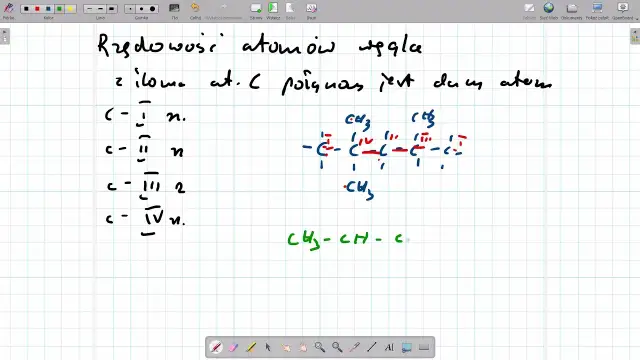 Rzędowość atomów węgla
z iloma at. C połączony jest dany atom
C - I rz.
C - II rz
C - III rz
C - IV rz.
CH3 CH3
I IV III I
- C - C - C - C - C -
CH3
CH3 - CH - C